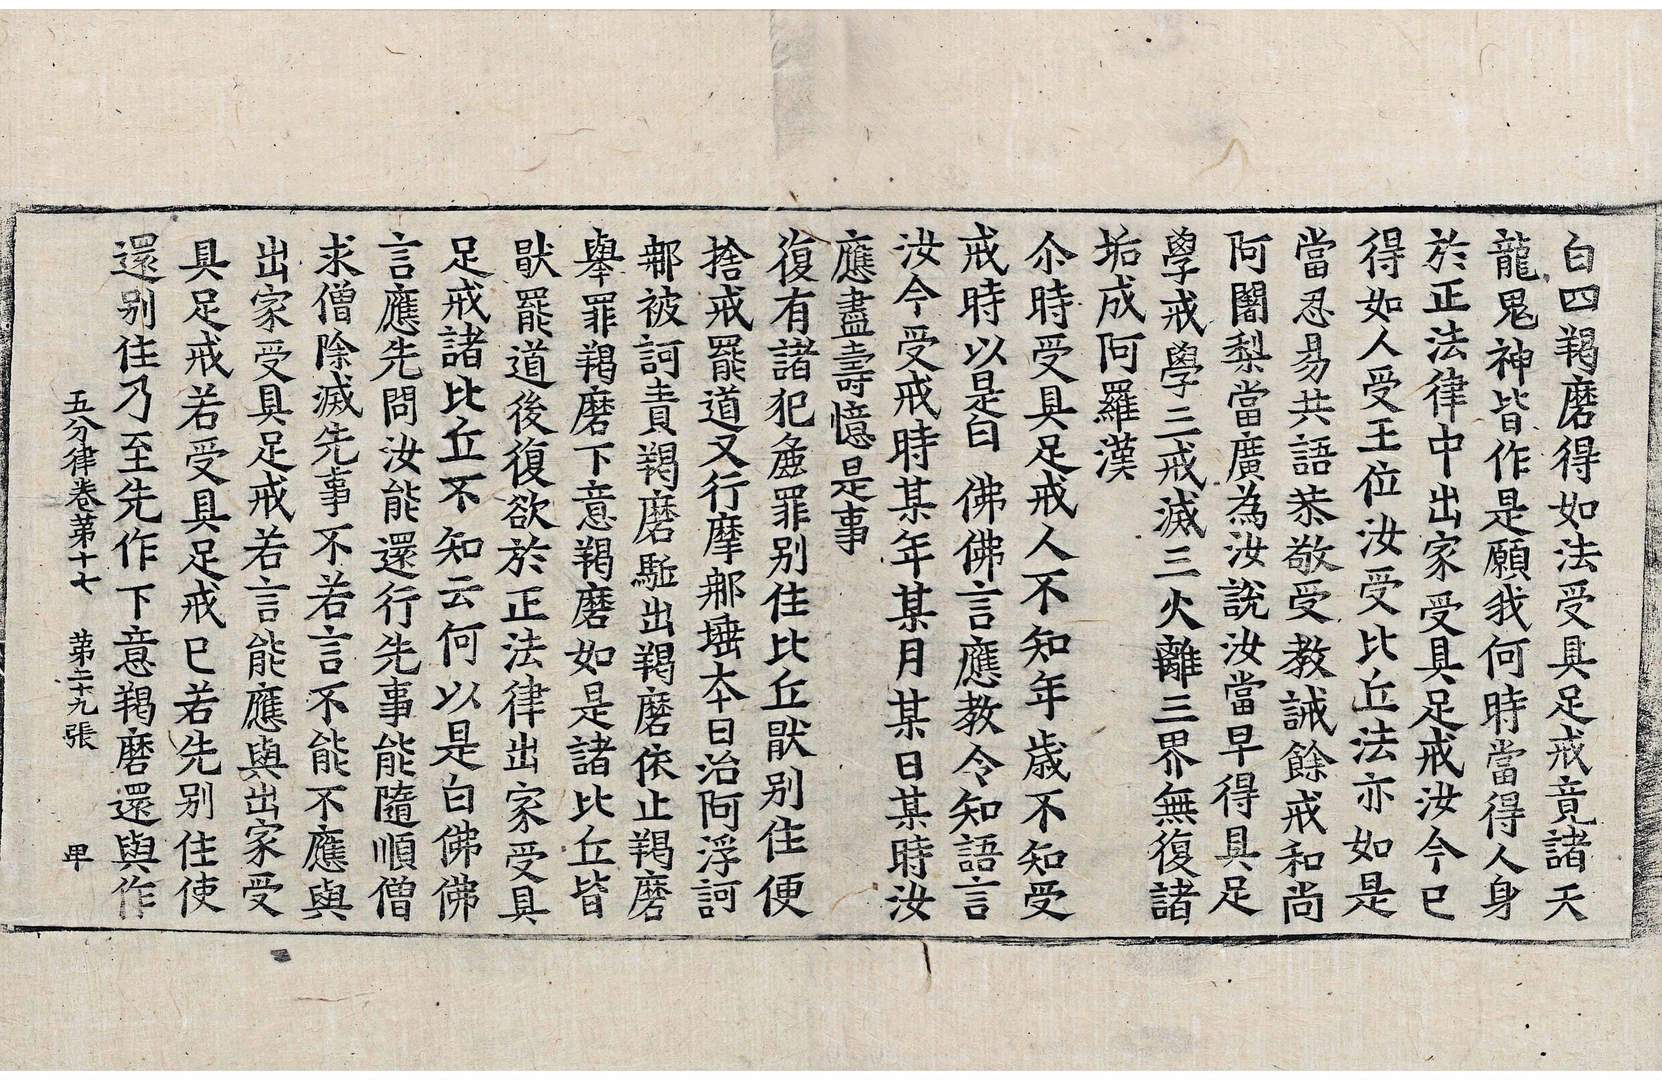 白四羯磨得如法受具足戒竟諸天
龍鬼神皆作是願我何時當得人身
於正法律中出家受具足戒汝今已
得如人受王位汝受比丘法亦如是
當忍易共語恭敬受教誡餘戒和尚
阿闍梨當廣為汝說汝當早得具足
學戒學三戒滅三火離三界無復諸
垢成阿羅漢
尒時受具足戒人不知年歲不知受
戒時以是白 佛佛言應教令知語言
汝今受戒時某年某月某日某時汝
應盡壽憶是事
復有諸犯麁罪別住比丘猒別住便
捨戒罷道又行摩那埵夲日治阿浮訶
那被訶責羯磨駈出羯磨依止羯磨
舉罪羯磨下意羯磨如是諸比丘皆
猒罷道後復欲於正法律出家受具
足戒諸比丘不知云何以是白佛佛
言應先問汝能還行先事能隨順僧
求僧除滅先事不若言不能不應與
出家受具足戒若言能應與出家受
具足戒若受具足戒已若先別住使
還別住乃至先作下意羯磨還與作
五分律卷第十七 第二十九張 甲